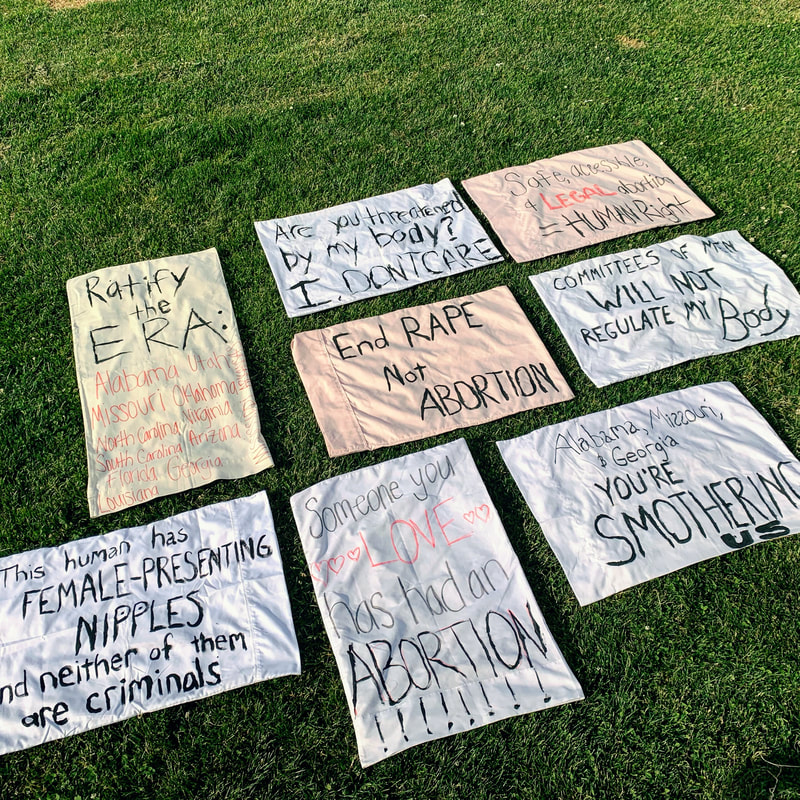 Safe, accessible,
& LEGAL abortion
= HUMAN Right
Are you threatened
by my body?
I. DON'T CARE
COMMITTEES OF MEN
WILL NOT
REGULATE MY Body
Ratify
the
ERA:
Alabama Utah
Missouri Oklahoma
North Carolina Virginia
South Carolina Arizona
Florida Georgia
Louisiana
End RAPE
Not
ABORTION
Alabama, Missouri,
& Georgia
YOU'RE
SMOTHERING
US
This human has
FEMALE-PRESENTING
NIPPLES
and neither of them
are criminals
Someone you
LOVE
has had an
ABORTION
!!!!!!!!!